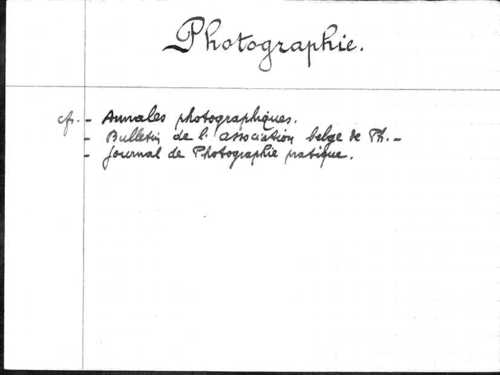 Photographie.
cfr. - Annales photographiques.
- Bulletin de l'association belge de Ph. -
- Journal de Photographie pratique.